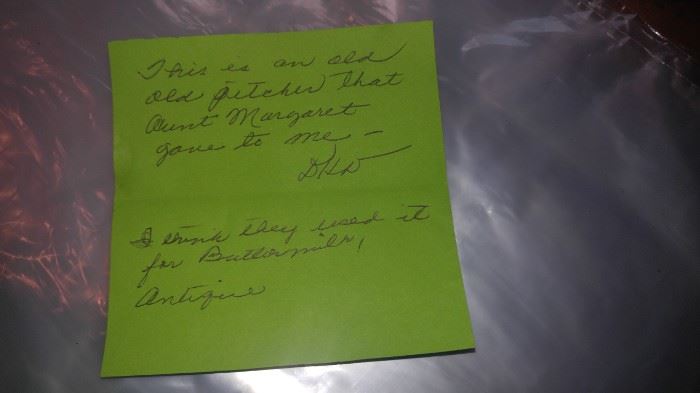 This is an old
old pitcher that
Aunt Margaret
gave to me -
I think they used it
for Buttermilk,
Antique